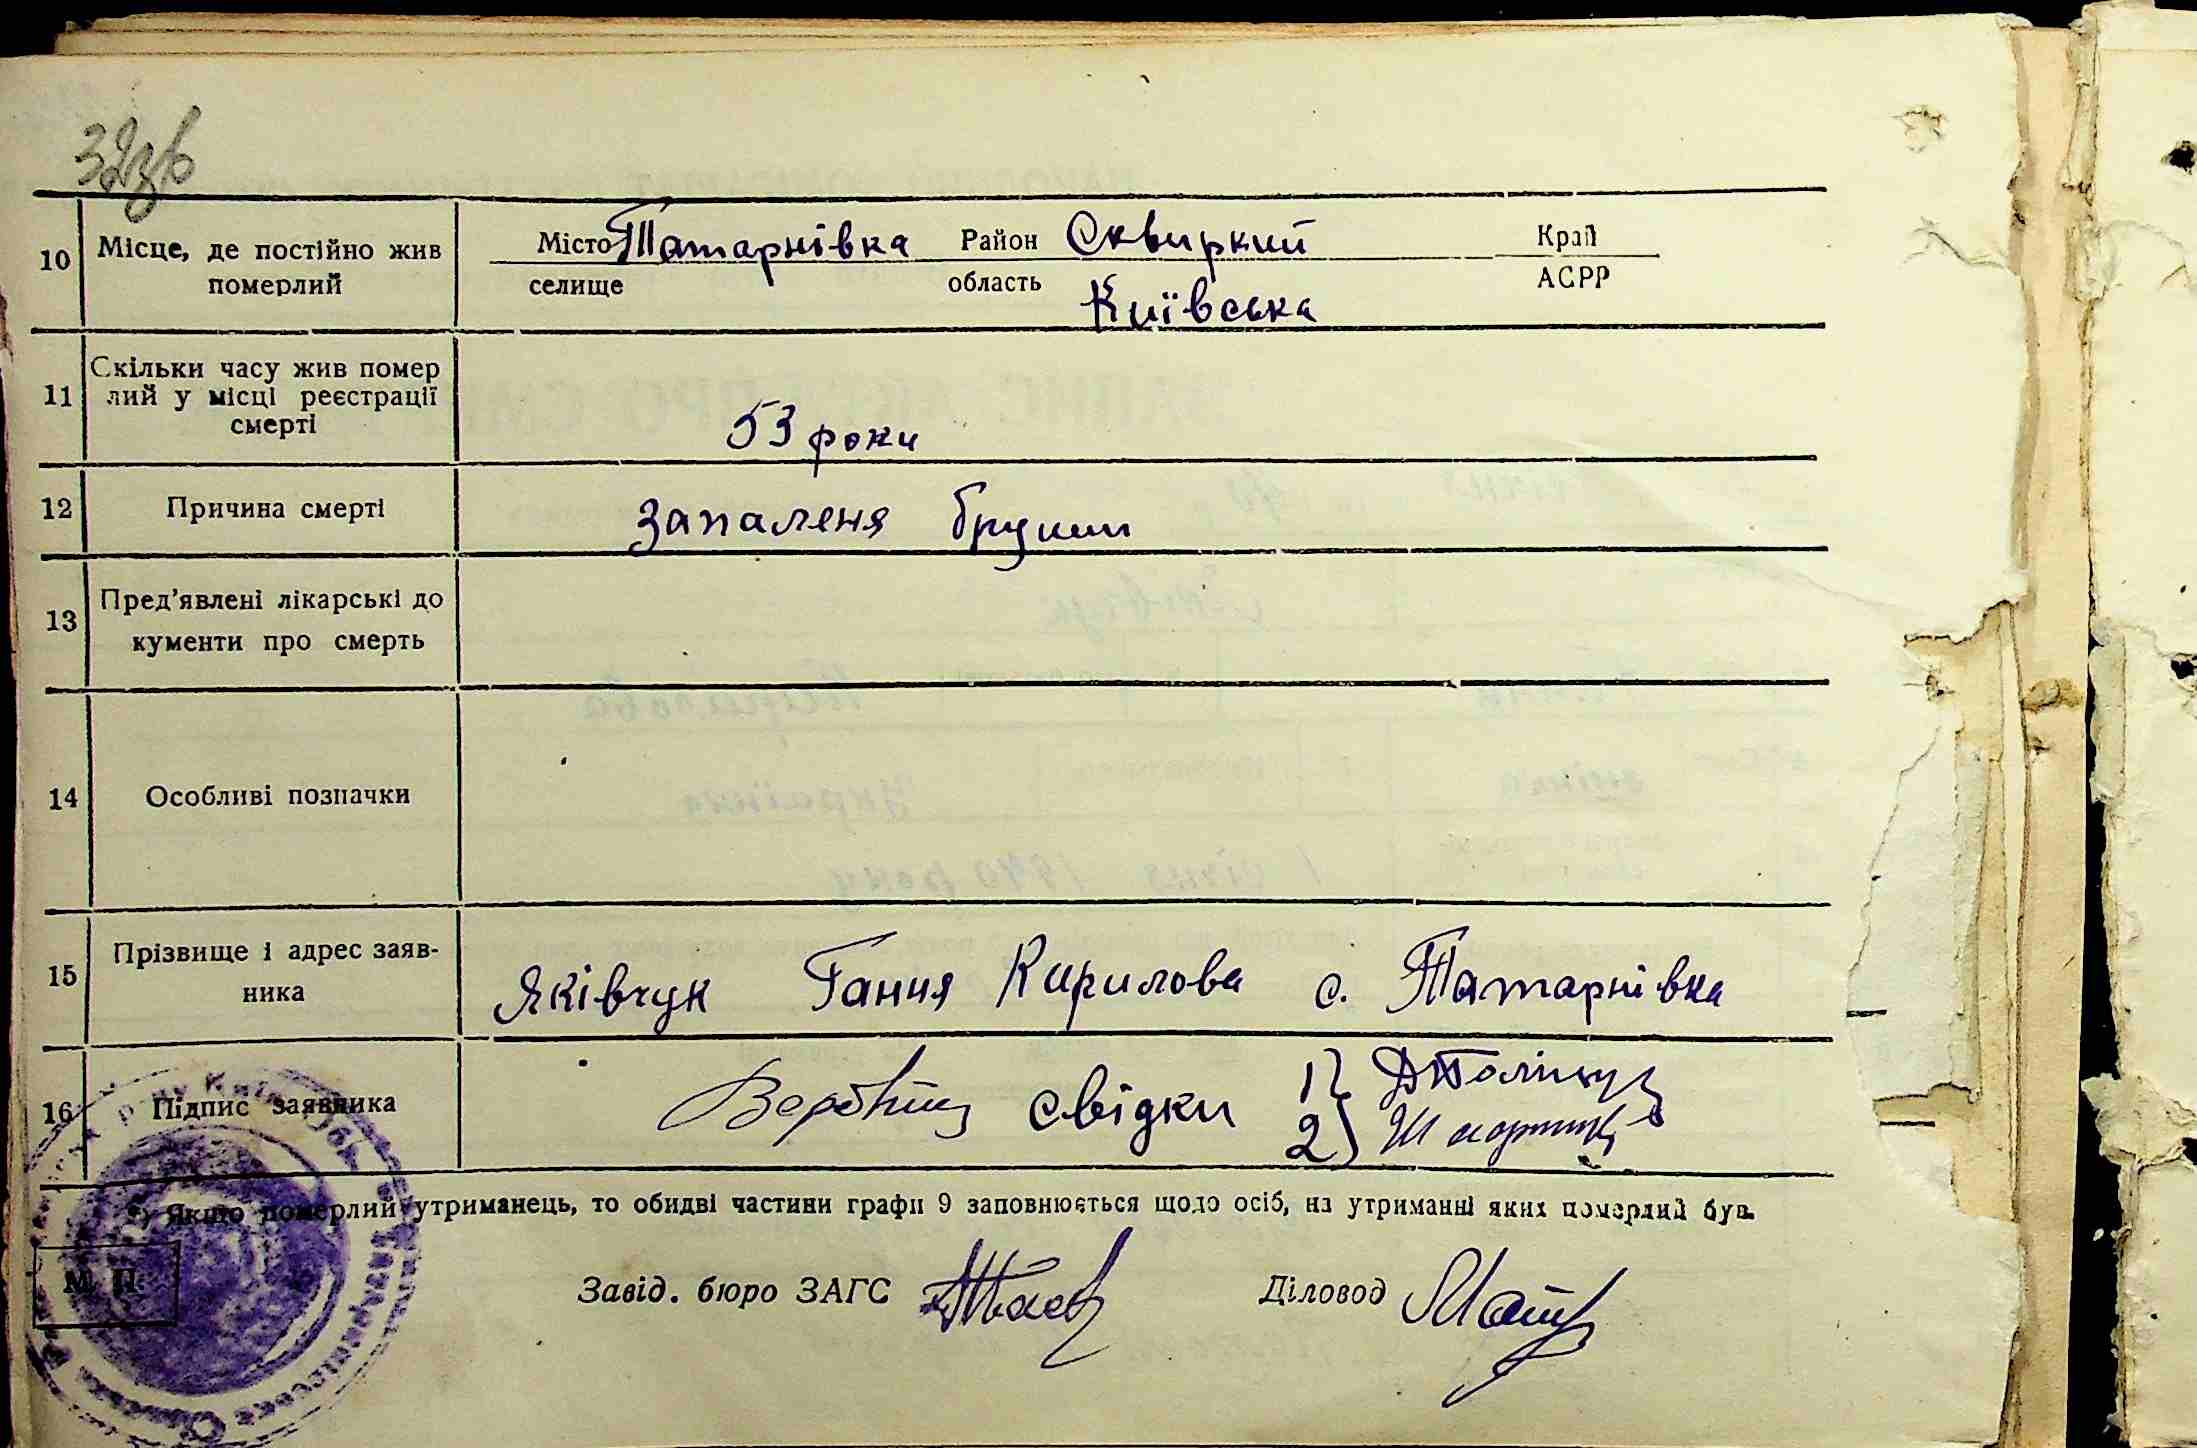 32зв
10 Місце, де постійно жив померлий
Місто Татарнівка Район Сквиркий Край
селище область Київська АСРР
11 Скільки часу жив помер
лий у місці реєстрації
смерті
53 роки
12 Причина смерті Запаленя брушш
13 Пред'явлені лікарські до
кументи про смерть
14 Особливі позначки
15 Прізвище і адрес заяв-
ника
Яківчук Гання Кирилова с. Татарнівка
16 Підпис заявника свідки 1)
2)
*) Якщо померлий утриманець, то обидві частини графи 9 заповнюється щодо осіб, на утриманні яких померлий був.
М. П.
Завід. бюро ЗАГС Діловод